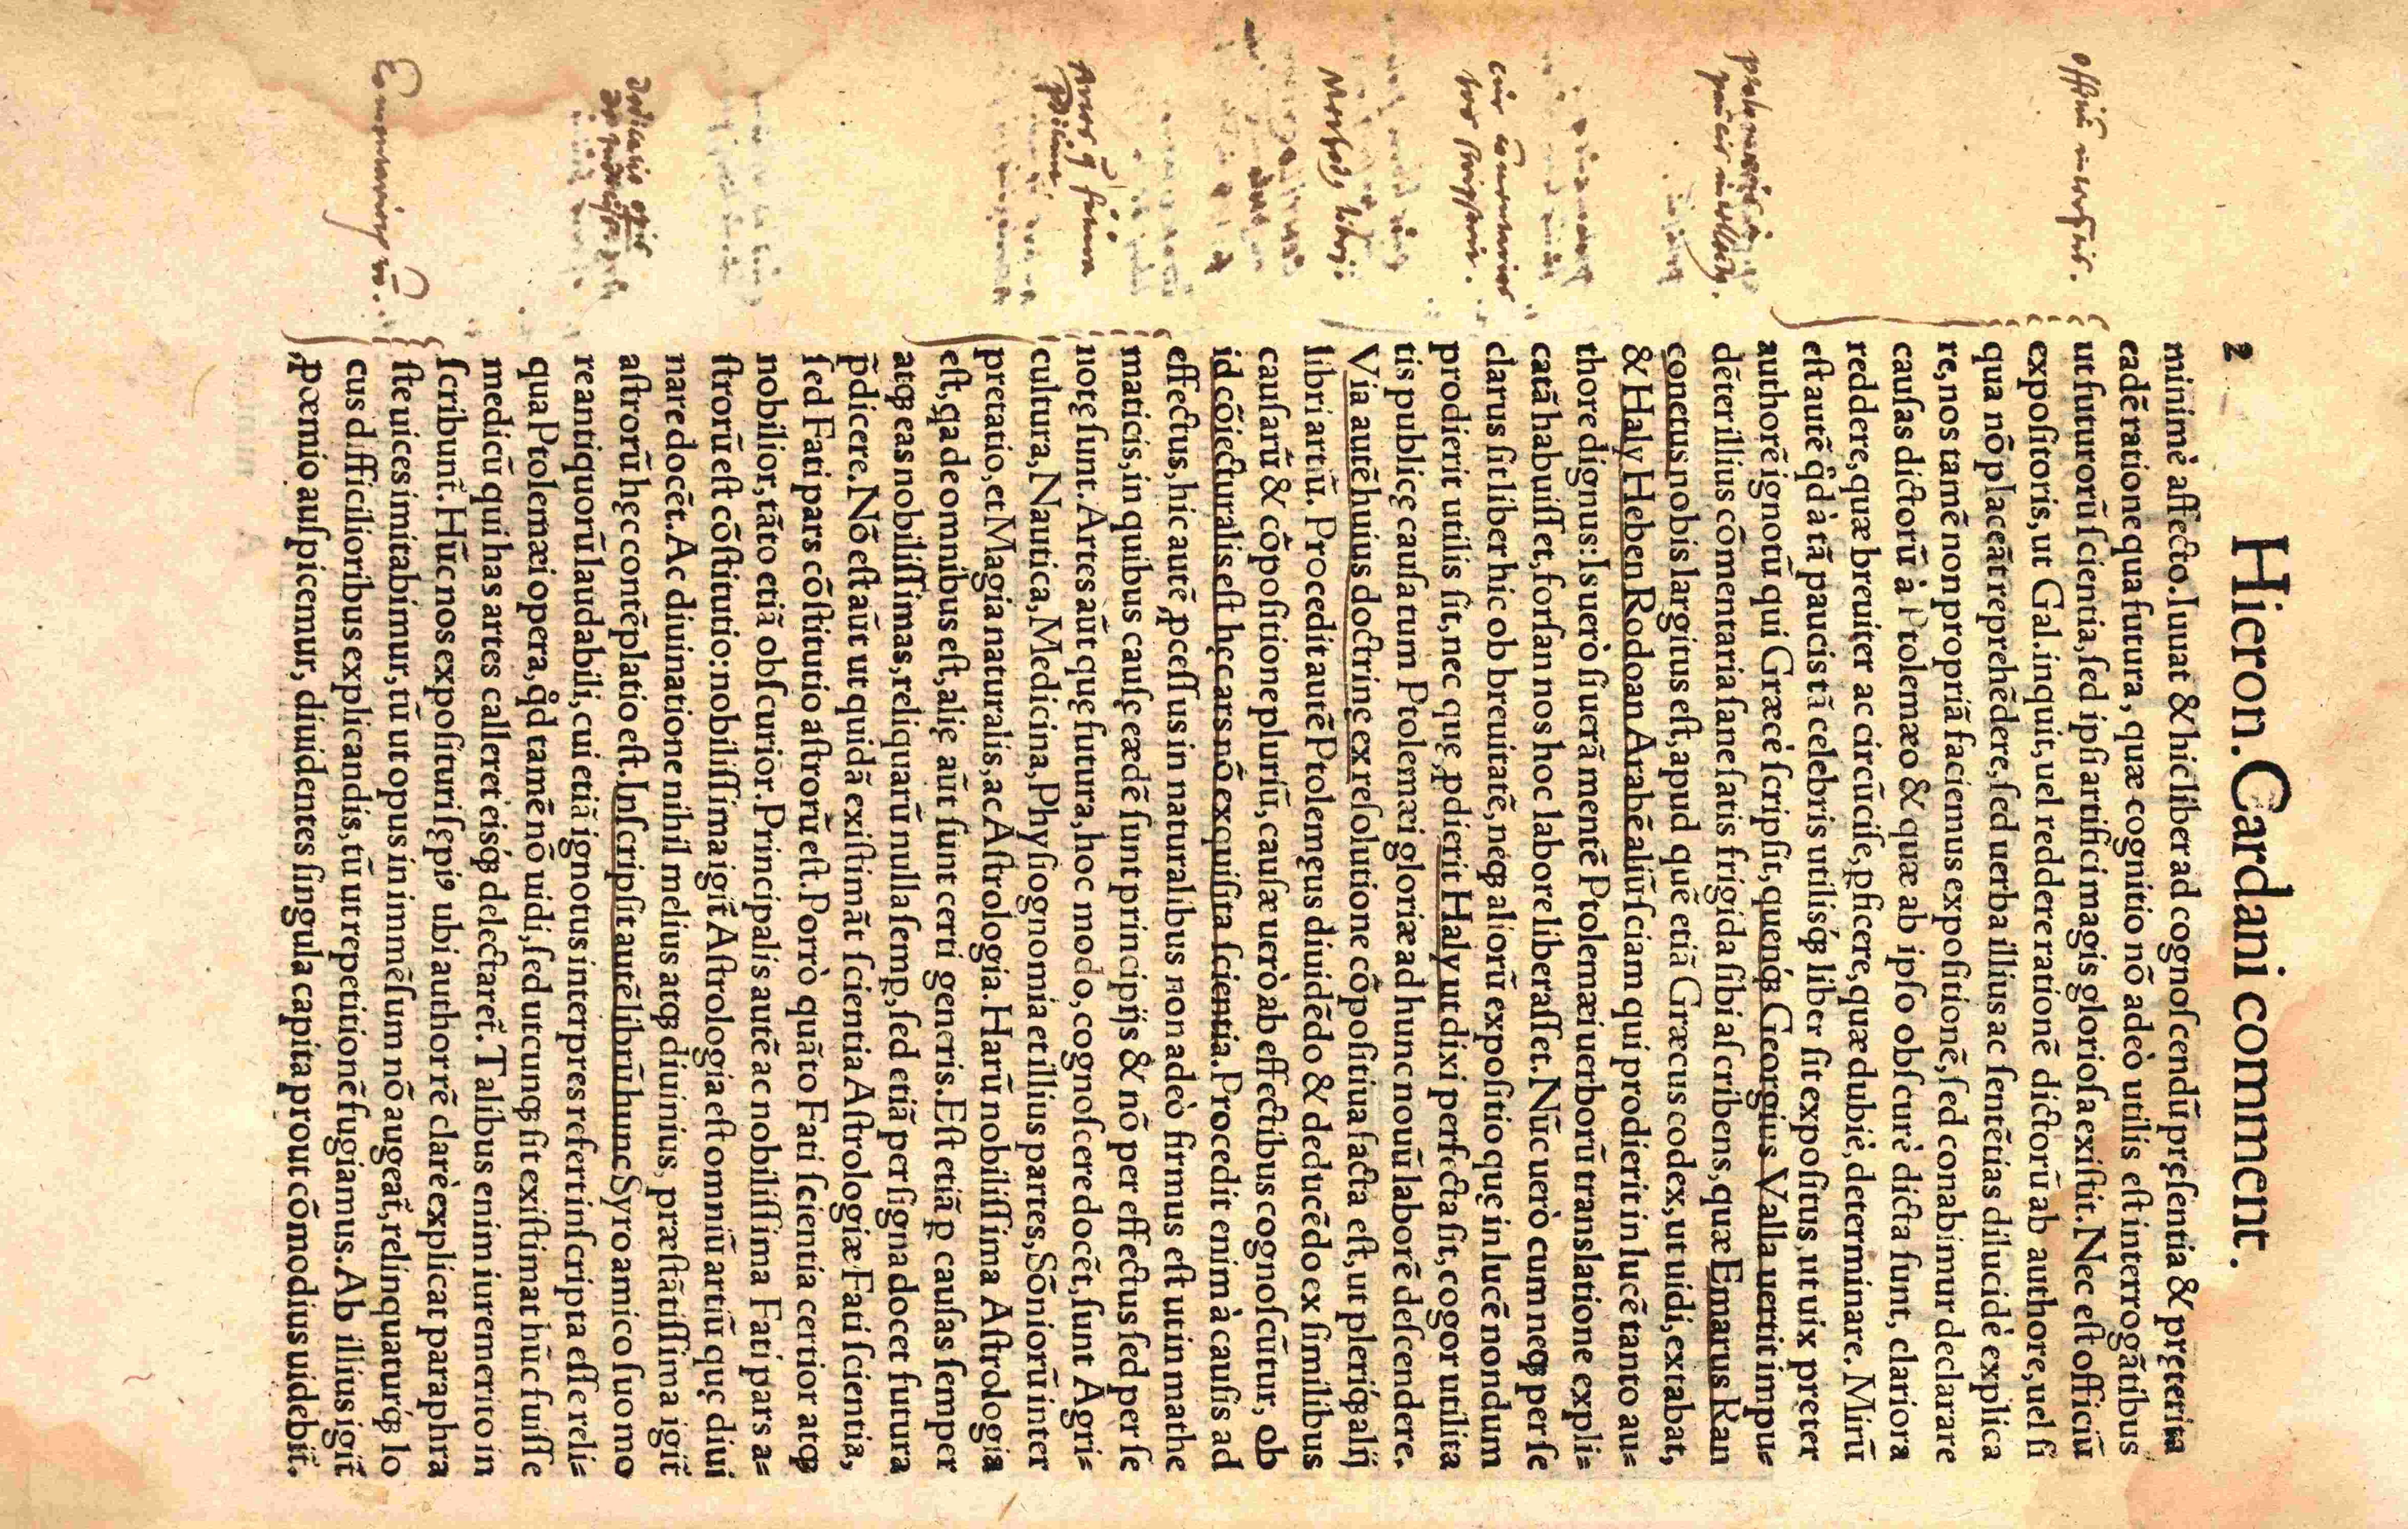 2 Hieron. Cardani comment.
minimè affecto. Iuuat & hic liber ad cognoſcendū pręſentia & pręterita
eadē ratione qua futura, quæ cognitio nō adeò utilis eſt interrogātibus
ut futurorū ſcientia, ſed ipſi artifici magis glorioſa exiſtit. Nec eſt officiū
expoſitoris, ut Gal. inquit, uel reddere rationē dictorū ab authore, uel ſi
qua nō placeāt reprehēdere, ſed uerba illius ac ſentētias dilucidè explica
re, nos tamē non propriā faciemus expoſitionē, ſed conabimur declarare
cauſas dictorū à Ptolemæo & quæ ab ipſo obſcurè dicta ſunt, clariora
reddere, quæ breuiter ac circūciſe, ꝑficere, quæ dubiè, determinare. Mirū
eſt autē qd̄ à tā paucis tā celebris utilisq́ꝫ liber ſit expoſitus, ut uix pręter
authorē ignotū qui Græcè ſcripſit, quenq́ꝫ Georgius Valla uertit impu⸗
dēter illius cōmentaria ſane ſatis frigida ſibi aſcribens, quæ Emarus Ran
conetus nobis largitus eſt, apud quē etiā Græcus codex, ut uidi, extabat,
& Haly Heben Rodoan Arabē aliū ſciam qui prodierit in lucē tanto au⸗
thore dignus: Is uerò ſi uerā mentē Ptolemæi uerborū translatione expli⸗
catā habuiſſet, forſan nos hoc labore liberaſſet. Nūc uerò cum neqꝫ per ſe
clarus ſit liber hic ob breuitatē, neqꝫ aliorū expoſitio quę in lucē nondum
prodierit utilis ſit, nec quę ꝓdierit Haly ut dixi perfecta ſit, cogor utilita
tis publicę cauſa tum Ptolemæi gloriæ ad hunc nouū laborē deſcendere.
Via autē huius doctrinę ex reſolutione cōpoſitiua facta eſt, ut pleriq́ꝫ alij
libri artiū. Procedit autē Ptolemęus diuidēdo & deducēdo ex ſimilibus
cauſarū & cōpoſitione pluriū, cauſæ uerò ab effectibus cognoſcūtur, ob
id cōiecturalis eſt hęc ars nō exquiſita ſcientia. Procedit enim à cauſis ad
effectus, hic autē ꝓceſſus in naturalibus non adeò firmus eſt ut in mathe
maticis, in quibus cauſę eædē ſunt principijs & nō per effectus ſed per ſe
notę ſunt. Artes aūt quę futura, hoc modo, cognoſcere docēt, ſunt Agri⸗
cultura, Nautica, Medicina, Phyſiognomia et illius partes, Sōniorū inter
pretatio, et Magia naturalis, ac Aſtrologia. Harū nobiliſſima Aſtrologia
eſt, qa de omnibus eſt, alię aūt ſunt certi generis. Eſt etiā ꝑ cauſas ſemper
atqꝫ eas nobiliſſimas, reliquarū nulla ſemꝑ, ſed etiā per ſigna docet futura
p̄dicere. Nō eſt aūt ut quidā exiſtimāt ſcientia Aſtrologiæ Fati ſcientia,
ſed Fati pars cōſtitutio aſtrorū eſt. Porrò quāto Fati ſcientia certior atqꝫ
nobilior, tāto etiā obſcurior. Principalis autē ac nobiliſſima Fati pars a⸗
ſtrorū eſt cōſtitutio: nobiliſſima igit̃ Aſtrologia eſt omniū artiū quę diui
nare docēt. Ac diuinatione nihil melius atqꝫ diuinius, præſtātiſſima igit̃
aſtrorū hęc contēplatio eſt. Inſcripſit autē librū hunc Syro amico ſuo mo
re antiquorū laudabili, cui etiā ignotus interpres refert inſcripta eſſe reli⸗
qua Ptolemæi opera, qd̄ tamē nō uidi, ſed utcunqꝫ ſit exiſtimat hūc fuiſſe
medicū qui has artes calleret eisq́ꝫ delectaret̃. Talibus enim iure merito in
ſcribunt̃. Hūc nos expoſituri ſępiꝰ ubi authorē clarè explicat paraphra
ſte uices imitabimur, tū ut opus in immēſum nō augeat̃, relinquaturq́ꝫ lo
cus difficilioribus explicandis, tū ut repetitionē fugiamus. Ab illius igit̃
ꝓœmio auſpicemur, diuidentes ſingula capita prout cōmodius uidebit̃.